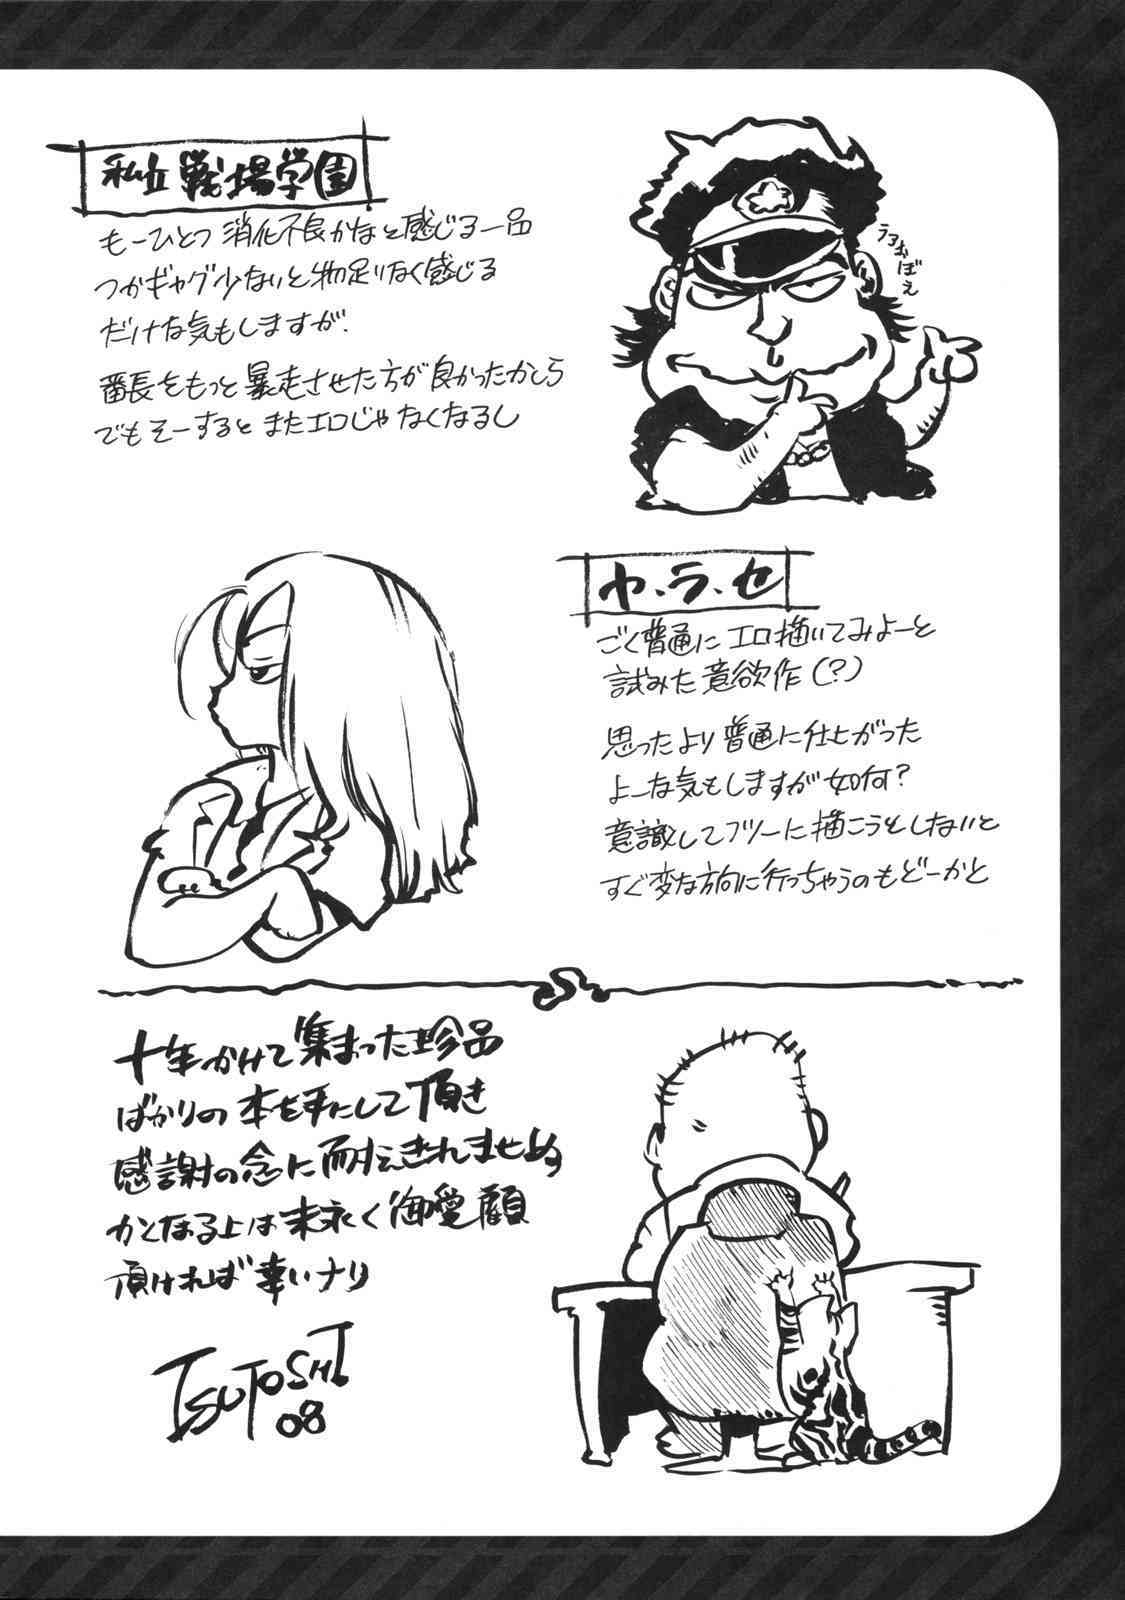 私立戦場学園
もーひとつ 消化不良かなと感じる一品
つかギャグ少ないと物足りなく感じる
だけな気もしますが、
番長をもっと暴走させた方が良かったかしら
でもそーするとまたエロじゃなくなるし
ヤ・ラ・セ
ごく普通にエロ描いてみよーと
試みた意欲作(?)
思ったより普通に仕上がった
よーな気もしますが如何?
意識してフツーに描こうとしないと
すぐ変な方向に行っちゃうのもどーかと
十年かけて集まった珍品
ばかりの本を手にして頂き
感謝の念に耐えきれませぬ
かくなる上は末永く御愛顧
頂ければ幸いナリ
TSUTOSHI
08